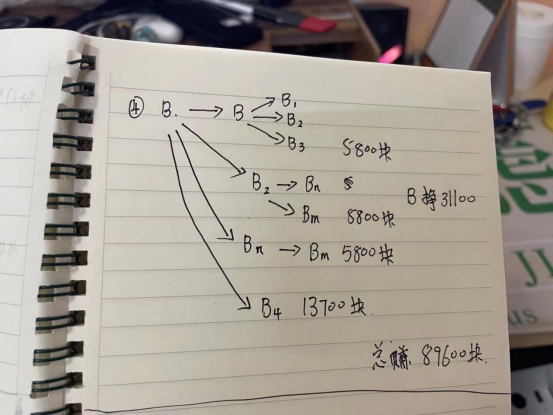 ④ B. → B → B₁
→ B₂
→ B₃ 5800块
B₂ → Bn
→ Bm 8800块
B 挣31100
Bn → Bm 5800块
B₄ 13700块.
总赚 89600块.
JL
us